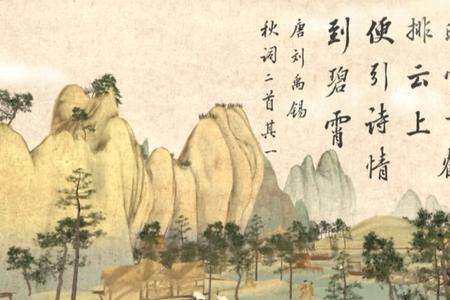 排云上
便引诗情
到碧霄
唐刘禹锡
秋词二首其一